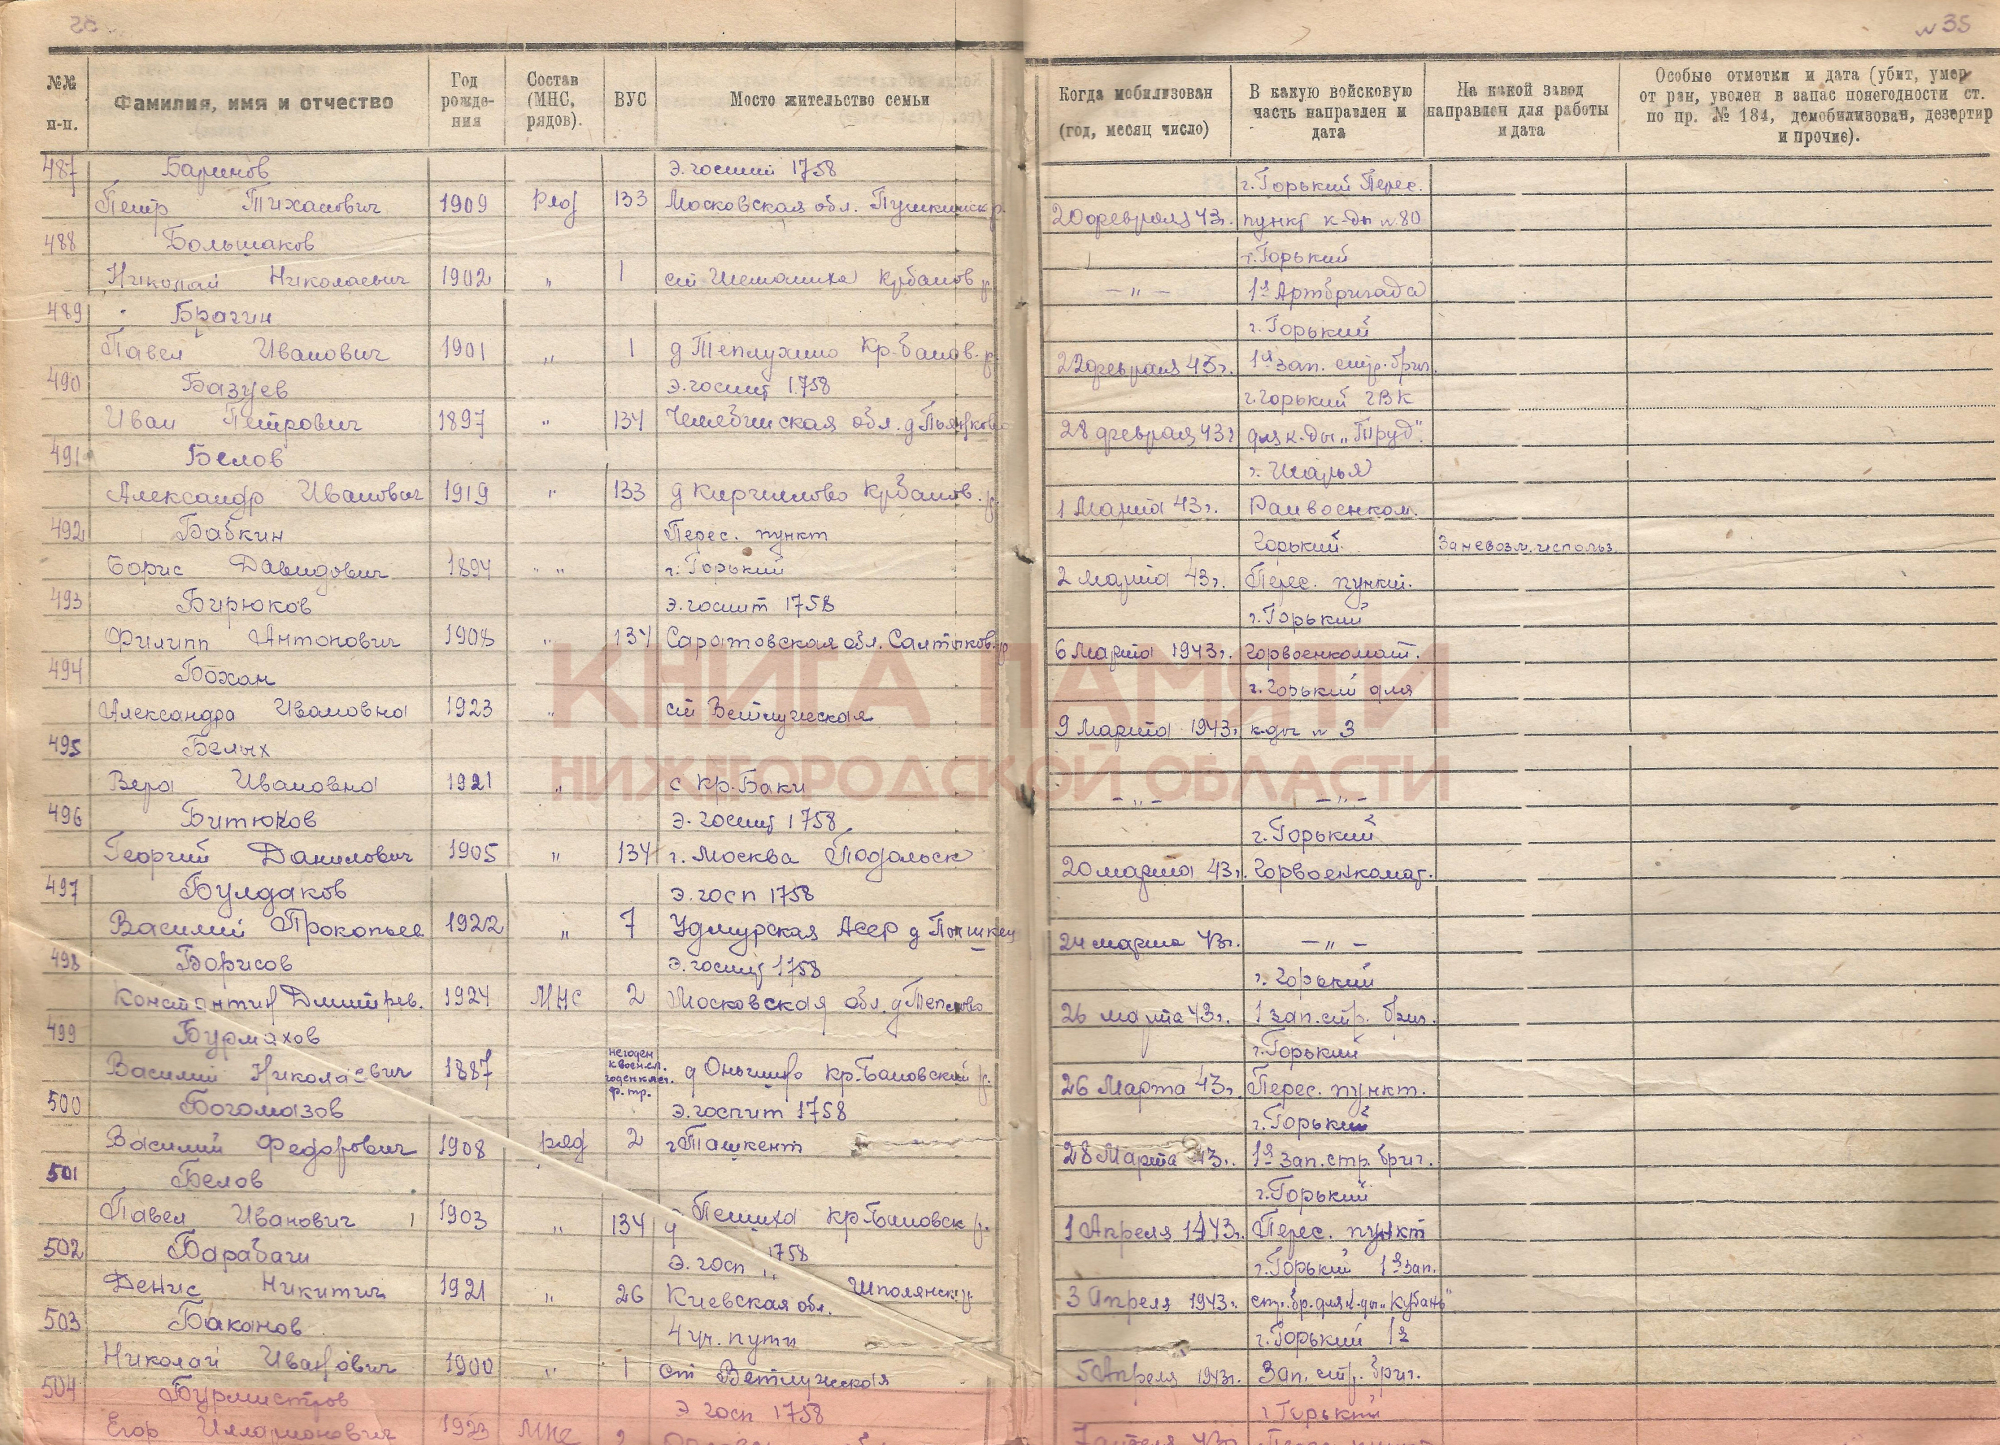 № 35
№№ п-п.
Фамилия, имя и отчество
Год рожде-ния
Состав (МНС, рядов).
ВУС
Мосто жительство семьи
Когда мобилизован (год, месяц число)
В какую войсковую часть направлен и дата
На какой завод направлен для работы и дата
Особые отметки и дата (убит, умер от ран, уволен в запас понегодности ст. по пр. № 184, демобилизован, дезертир и прочие).
487 Баринов э. госпит 1758 г. Горький Перес.
Петр 1909 Ряд 133 Московская обл. Пушкинск р. 20 февраля 43г. пункт к-ды №80
488 Большаков г. Горький
Николай Николаевич 1902 „ 1 ст Шеманиха Кр.баков р. — „ — 1я Артбригада
489 Брагин г. Горький
Павел Иванович 1901 „ 1 д Теплухино Кр.-баков. р. 22 февраля 43г. 1я зап. стр. бриг.
490 Базуев э. госпит 1758 г. Горький ГВК
Иван Петрович 1897 „ 134 Челябинская обл. 28 февраля 43г для к-ды „Труд"
491 Белов г. Шарья
Александр Иванович 1919 „ 133 д Кириллово Кр.баков. р. 1 Марта 43г. Раивоенком.
492 Бабкин Перес. пункт Горький Заневозм. использ.
Борис Давидович 1894 „ „ г. Горький 2 марта 43г. Перес. пункт.
493 Бирюков э. госпит 1758 г. Горький
Филипп Антонович 1908 „ 134 Саратовская обл. Салтыков. р 6 Марта 1943г. Горвоенкомат.
494 Бохан г. Горький для
Александра Ивановна 1923 „ ст Ветлужская 9 Марта 1943г. к-ды № 3
495 Белых
Вера Ивановна 1921 „ с Кр. Баки — „ — — „ —
496 Битюков э. госпит 1758 г. Горький
Георгий Данилович 1905 „ 134 г. Москва Подольск 20 марта 43г. Горвоенкомат.
497 Булдаков э. госп 1758
Василий Прокопьев 1922 „ 7 Удмурская Асср д 24 марта 43г. — „ —
498 Борисов э. госпит 1758 г. Горький
Константин Дмитрев. 1924 МНС 2 Московская обл. д 26 марта 43г. 1 зап. стр. бриг.
499 Бурмахов г. Горький
Василий Николаевич 1887 негоден к воен. сл. годен к ф. тр. д Кр.Баковский р. 26 Марта 43г. Перес. пункт.
500 Богомазов э. госпит 1758 г. Горький
Василий Федорович 1908 ряд 2 г Ташкент 28 Марта 43г. 1я зап. стр. бриг.
501 Белов г. Горький
Павел Иванович 1903 „ 134 д Кр.Баковск р. 1 Апреля 1943г. Перес. пункт
502 Барабаш э. госп „ 1758 г. Горький 1я зап.
Денис Никитич 1921 „ 26 Киевская обл. Шполянск р. 3 Апреля 1943г. стр. бр. для к-ды „Кубань"
503 Баканов 4 уч. пути г. Горький 1я
Николай Иванович 1900 „ 1 ст Ветлужская 5 Апреля 1943г. Зап. стр. бриг.
504 Бурмистров э госп 1758 г Горький
Егор Илларионович 1923 МНС 2 7 апреля 43г
КНИГА ПАМЯТИ
НИЖЕГОРОДСКОЙ ОБЛАСТИ